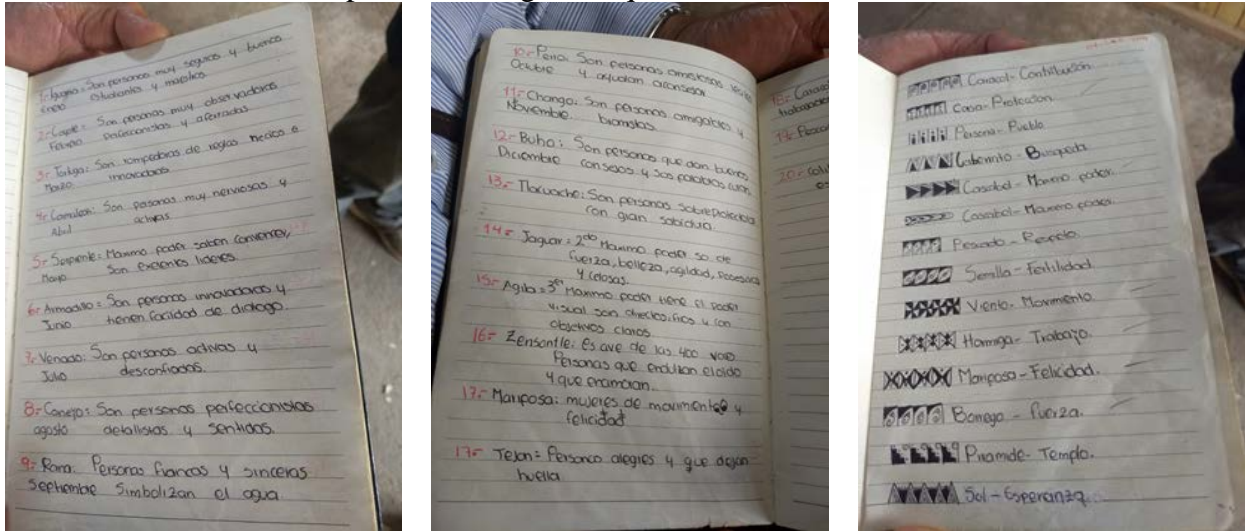 1.- Iguana: Son personas muy seguras y buenos
Enero estudiantes y maestros.
2.- Coyote: Son personas muy observadoras
Febrero Perfeccionistas y aferradas
3.- Tortuga: Son rompedoras de reglas necios e
Marzo innovadores
4.- Camaleon: Son personas muy nerviosas y
Abril activas.
5.- Serpiente: Maximo poder saben convencer,
Mayo Son exelentes lideres.
6.- Armadillo: Son personas innovadoras y
Junio tienen facilidad de dialogo.
7.- Venado: Son personas activas y
Julio desconfiadas.
8.- Conejo: Son personas perfeccionistas
agosto detallistas y sentidas.
9.- Rana: Personas francas y sinceras
Septiembre Simbolizan el agua
10.- Perro: Son personas amistosas leales
Octubre y ayudan aconsejar
11.- Chango: Son personas amigables y
Noviembre. bromistas.
12.- Buho: Son personas que dan buenos
Diciembre consejos y sus palabras curan.
13.- Tlacuache: Son personas sobreprotectoras
con gran sabiduria.
14.- Jaguar: 2do Maximo poder so de
fuerza, belleza, agilidad, posesivas
y celosas.
15.- Agila = 3er Maximo poder tiene el poder
visual son
objectivos claros.
16.- Zensontle: es ave de las 400 voces
Personas que endulzan el oido
y que enamoran.
17.- Mariposa: mujeres de movimiento y
felicidad
17.- Tejon = Personas alegres y que dejan
huella
18.- Caracol
19.-
20.-
Caracol - Contribución.
Casa - Protección
Persona - Pueblo
Laberinto - Busqueda.
Cascabel - Maximo poder.
Cascabel - Maximo poder.
Pescado - Respeto.
Semilla - Fertilidad
Viento - Movimiento
Hormiga - Trabajo.
Mariposa - Felicidad.
Borrego - fuerza.
Piramide - Templo.
Sol - Esperanza.